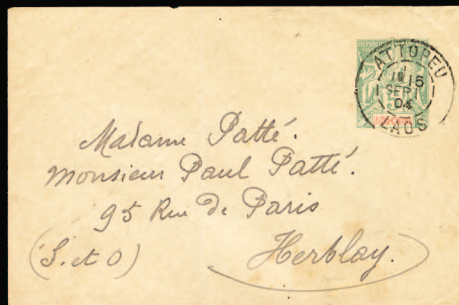 ATTOPEU
15
SEPT
04
LAOS
Madame Patté.
Monsieur Paul Patté.
95 Rue de Paris
(S. et O) Herblay.